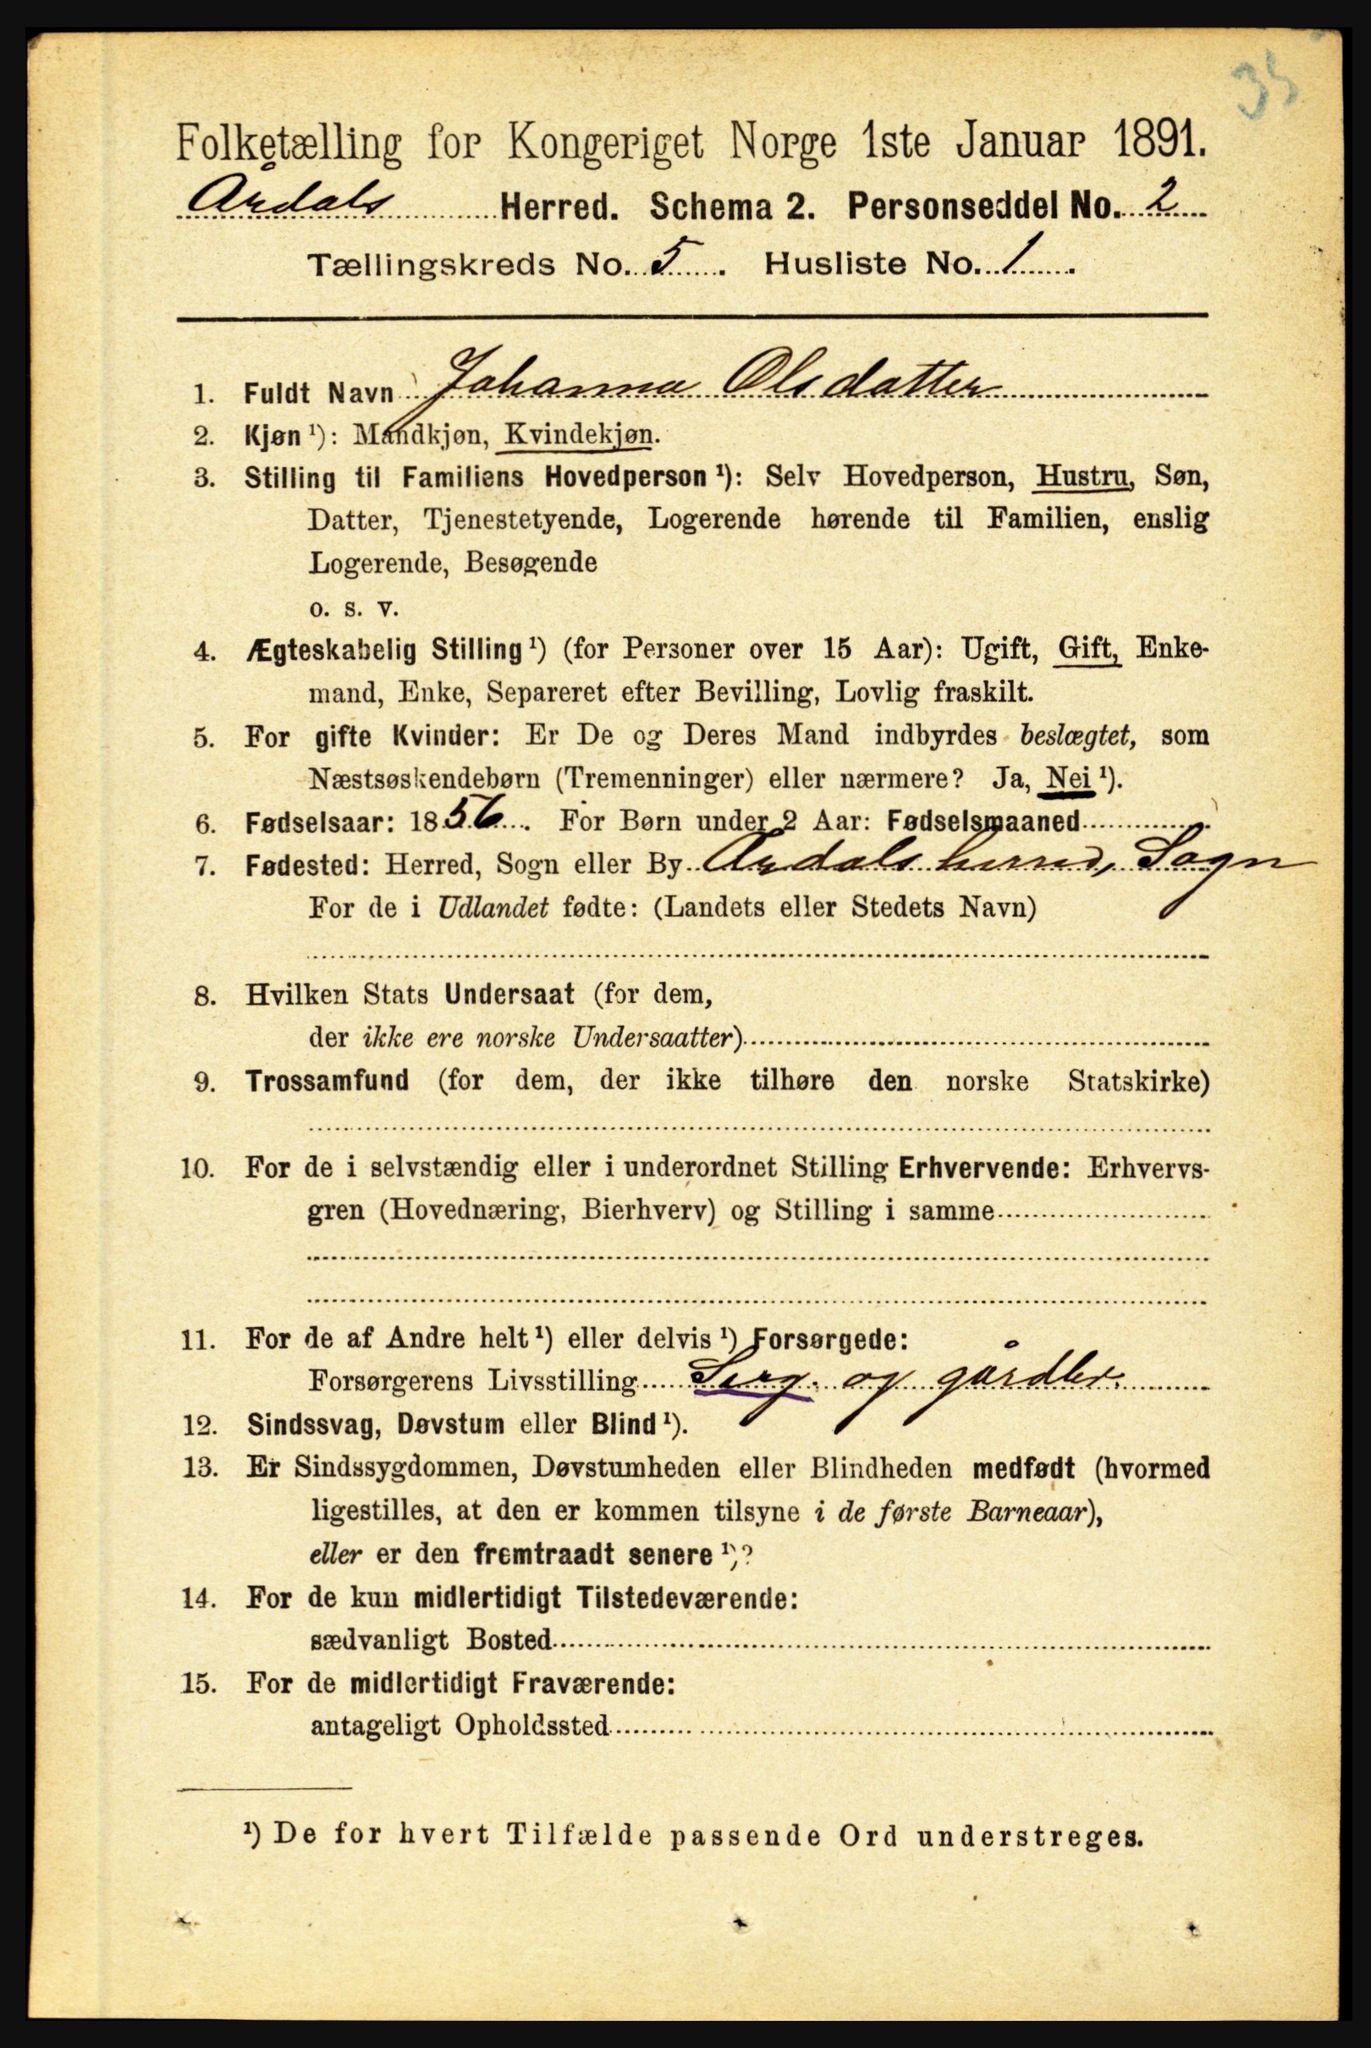 35
Folketælling for Kongeriget Norge 1ste Januar 1891.
Årdals Herred. Schema 2. Personseddel No. 2
Tællingskreds No. 5. Husliste No. 1.
1. Fuldt Navn Johanna Olsdatter
2. Kjøn ¹): Mandkjøn, Kvindekjøn.
3. Stilling til Familiens Hovedperson ¹): Selv Hovedperson, Hustru, Søn,
Datter, Tjenestetyende, Logerende hørende til Familien, enslig
Logerende, Besøgende
o. s. v.
4. Ægteskabelig Stilling ¹) (for Personer over 15 Aar): Ugift, Gift, Enke-
mand, Enke, Separeret efter Bevilling, Lovlig fraskilt.
5. For gifte Kvinder: Er De og Deres Mand indbyrdes beslægtet, som
Næstsøskendebørn (Tremenninger) eller nærmere? Ja, Nei ¹).
6. Fødselsaar: 1856. For Børn under 2 Aar: Fødselsmaaned
7. Fødested: Herred, Sogn eller By Årdals herred, Sogn
For de i Udlandet fødte: (Landets eller Stedets Navn)
8. Hvilken Stats Undersaat (for dem,
der ikke ere norske Undersaatter)
9. Trossamfund (for dem, der ikke tilhøre den norske Statskirke)
10. For de i selvstændig eller i underordnet Stilling Erhvervende: Erhvervs-
gren (Hovednæring, Bierhverv) og Stilling i samme
11. For de af Andre helt ¹) eller delvis ¹) Forsørgede:
Forsørgerens Livsstilling og gårdbr.
12. Sindssvag, Døvstum eller Blind ¹).
13. Er Sindssygdommen, Døvstumheden eller Blindheden medfødt (hvormed
ligestilles, at den er kommen tilsyne i de første Barneaar),
eller er den fremtraadt senere ¹)?
14. For de kun midlertidigt Tilstedeværende:
sædvanligt Bosted
15. For de midlertidigt Fraværende:
antageligt Opholdssted
¹) De for hvert Tilfælde passende Ord understreges.